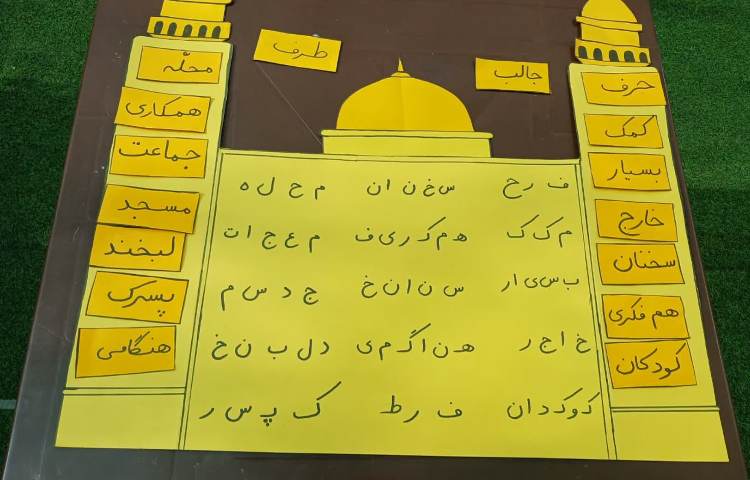 طرف
جالب
حرف
کمک
بسیار
خارج
سخنان
هم فکری
کودکان
محلّه
همکاری
جماعت
مسجد
لبخند
پسرک
هنگامی
ف ر ح    س خ ن ا ن    م ح ل ه
م ک ک    ه م ک ر ی ف    م ع ج ا ت
ب س ی ا ر    س ن ا ن خ    ج د س م
خ ا ج ر    ه ن ا گ م ی    د ل ب ن خ
ک و ک د ا ن    ف ر ط    ک پ س ر